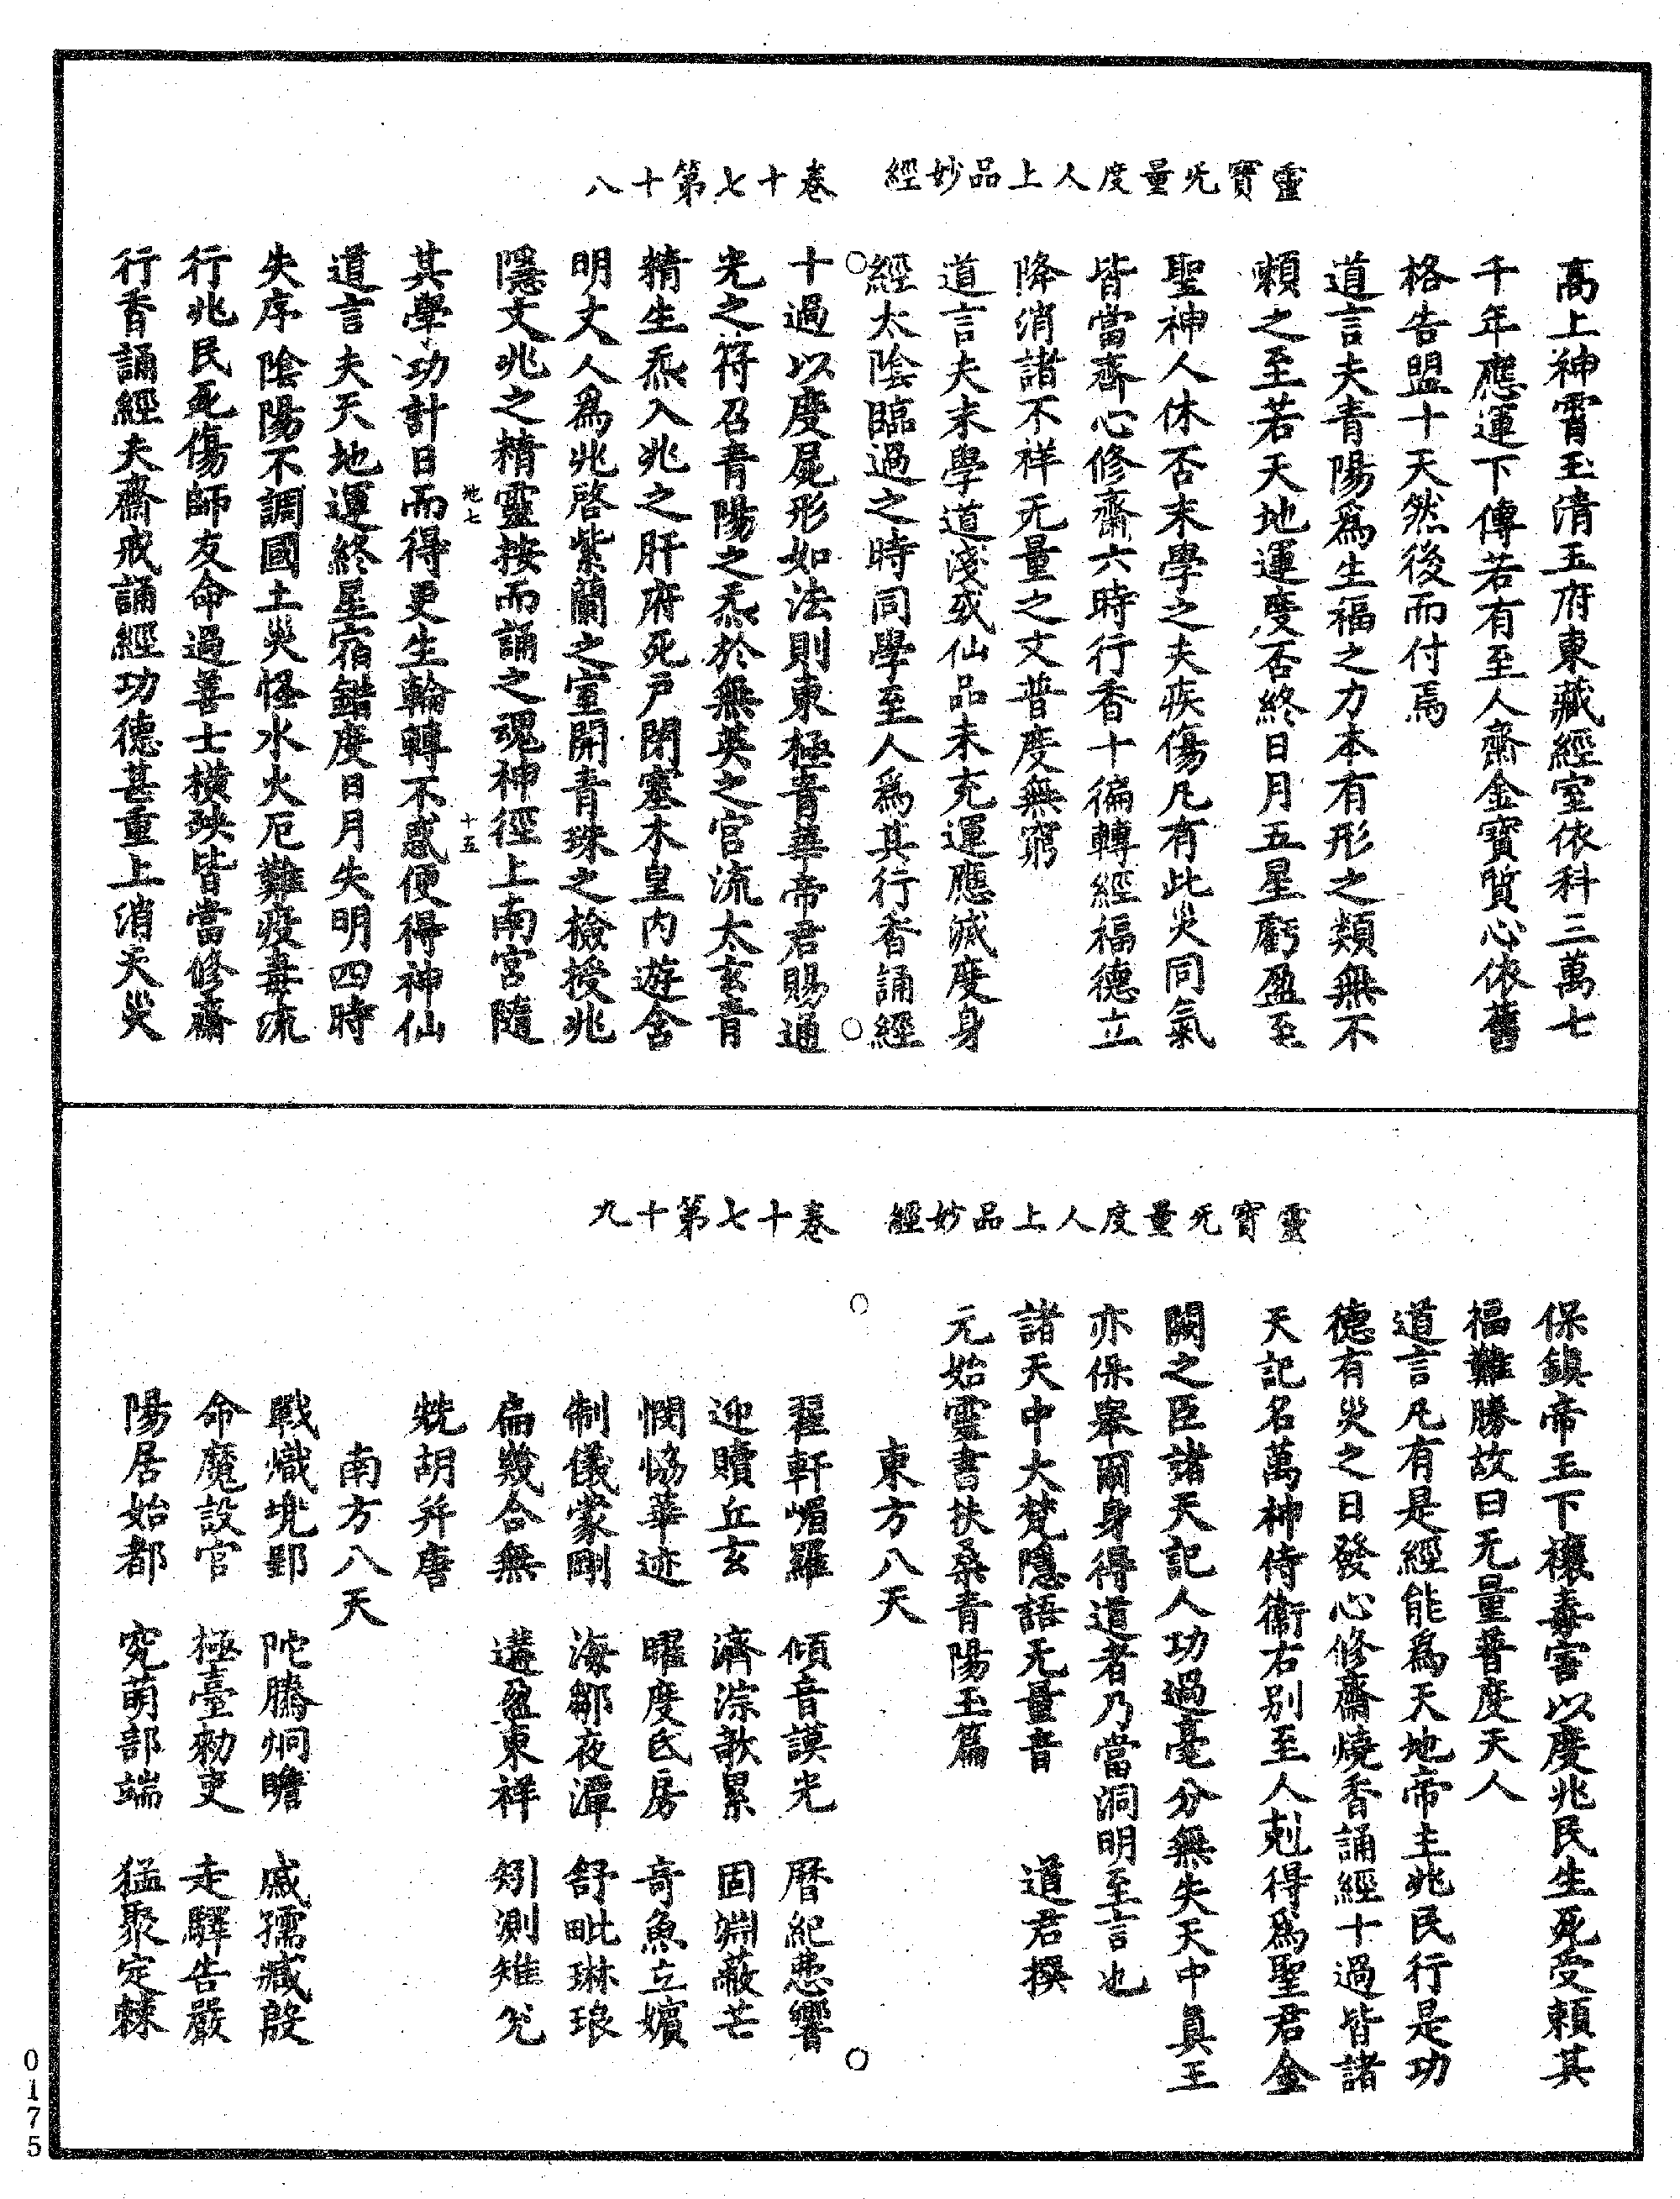 靈寶无量度人上品妙經　卷十七第十八
高上神霄玉清玉府東藏經室依科三萬七
千年應運下傳若有至人齎金寶質心依舊
格告盟十天然後而付焉
道言夫青陽爲生福之力本有形之類無不
賴之至若天地運度否終日月五星虧盈至
聖神人休否末學之夫疾傷凡有此災同氣
皆當齋心修齋六時行香十徧轉經福德立
降消諸不祥无量之文普度無窮
道言夫末學道淺或仙品未充運應滅度身
經太陰臨過之時同學至人爲其行香誦經
十過以度屍形如法則東極青華帝君賜通
光之符召青陽之炁於無英之宮流太玄青
精生炁入兆之肝府死戶閉塞木皇內遊含
明丈人爲兆啓紫蘭之室開青珠之檢授兆
隱文兆之精靈按而誦之魂神徑上南宮隨
池七　十五
其學功計日而得更生輪轉不感便得神仙
道言夫天地運終星宿錯度日月失明四時
失序陰陽不調國土災怪水火厄難疫毒流
行兆民死傷師友命過善士橫殃皆當修齋
行香誦經夫齋戒誦經功德甚重上消天災
靈寶无量度人上品妙經　卷十七第十九
保鎮帝王下禳毒害以慶兆民生死受賴其
福難勝故曰无量普度天人
道言凡有是經能爲天地帝主兆民行是功
德有災之日發心修齋燒香誦經十過皆諸
天記名萬神侍衞右別至人剋得爲聖君金
闕之臣諸天記人功過毫分無失天中眞王
亦保舉爾身得道者乃當洞明至言也
諸天中大梵隱語无量音　道君撰
元始靈書扶桑青陽玉篇
東方八天
翟軒嵋羅　傾音謨光　曆紀悲響
迎贖丘玄　濟淙歌累　固淵蔽芒
憫恊華迹　曜度氐房　奇魚立嬪
制儀蒙剛　海鄒夜潭　舒毗琳琅
扁幾合無　遘盈東祥　矧測雉兊
兟胡并唐
南方八天
戰熾兠郢　陀騰炯瞻　戚孺臧殷
命魔設官　極臺勑吏　走驛告嚴
陽居始都　究萌部端　猛聚定棘
0175